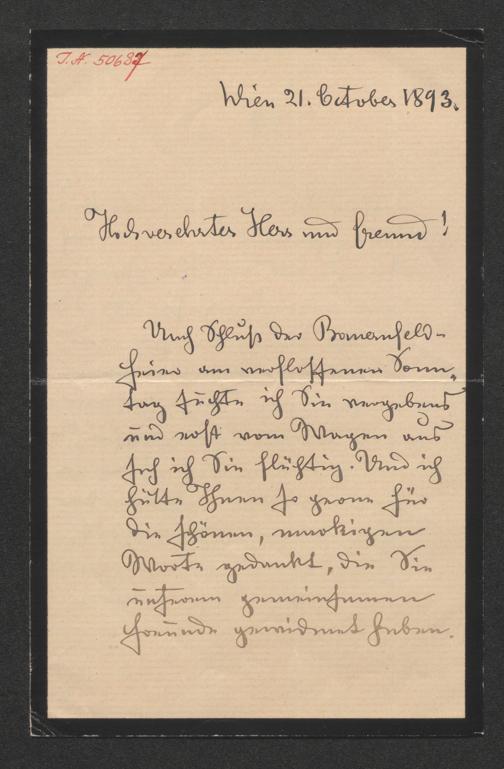 I.N. 50687
Wien 21. October 1893.
Hochverehrter Herr und Freund!
Nach Schluß der Bauernfeld-
feier am verflossenen Sonn-
tag suchte ich Sie vergebens
und erst vom Wagen aus
sah ich Sie flüchtig. Und ich
hätte Ihnen so gerne für
die schönen, markigen
Worte gedankt, die Sie
unserem gemeinsamen
Freunde gewidmet haben.